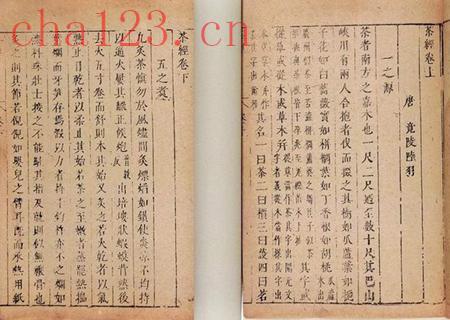 cha123.cn
茶經卷上
唐 竟陵陸羽
一之源
茶者南方之嘉木也一尺二尺迺至數十尺其巴山
峽川有兩人合抱者伐而掇之其樹如瓜蘆葉如梔
子花如白薔薇實如栟櫚葉如丁香根如胡桃瓜蘆木出
其字或
從草或從木或草木并
其名一曰茶二曰檟三曰蔎四曰茗
茶經卷下
五之煮
凡炙茶慎勿於風燼間炙熛焰如鑽使炎涼不均持
以逼火屢其翻正候炮出培塿狀蝦蟇背然後
去火五寸卷而舒則本其始又炙之若火乾者以氣
熟止日乾者以柔止其始若茶之至嫩者蒸罷熱搗
葉爛而牙筍存焉假以力者持千鈞杵亦不之爛如
漆科珠壯士接之不能駐其指及就則似無穰骨也
炙之則其節若倪倪如嬰兒之臂耳既而承熱用紙